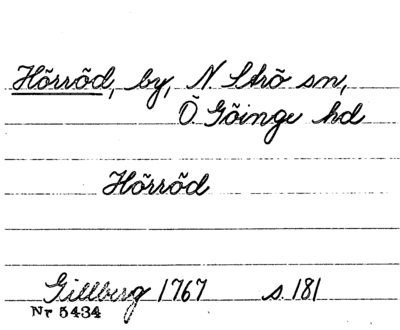 Hörröd, by, N. Strö sn,
Ö. Göinge hd
Hörröd
Gillberg 1767 s. 181
Nr 5434